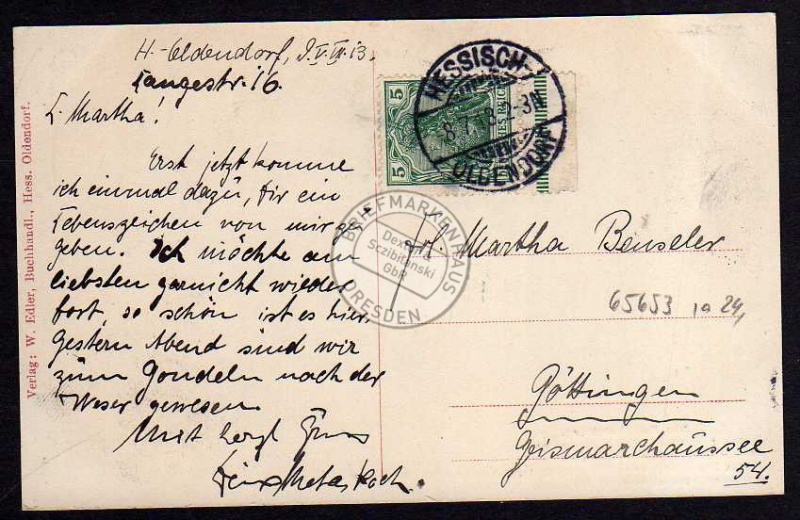 H.-Oldendorf,
Langestr. 16.
L. Martha!
Erst jetzt komme
ich einmal dazu, Dir ein
Lebenszeichen von mir zu
geben. Ich möchte am
liebsten garnicht wieder
fort, so schön ist es hier.
Gestern Abend sind wir
zum Gondeln nach der
Weser gewesen.
Mit herzl. Gruss
Meta Koch.
HESSISCH-
8.7.13.2-3N
OLDENDORF
5
5
Martha Benseler
65653 10 24,
Göttingen
Geismarchaussee
54.
BRIEFMARKENHAUS
Sczibilanski
GbR
DRESDEN
Verlag: W. Edler, Buchhandl., Hess. Oldendorf.